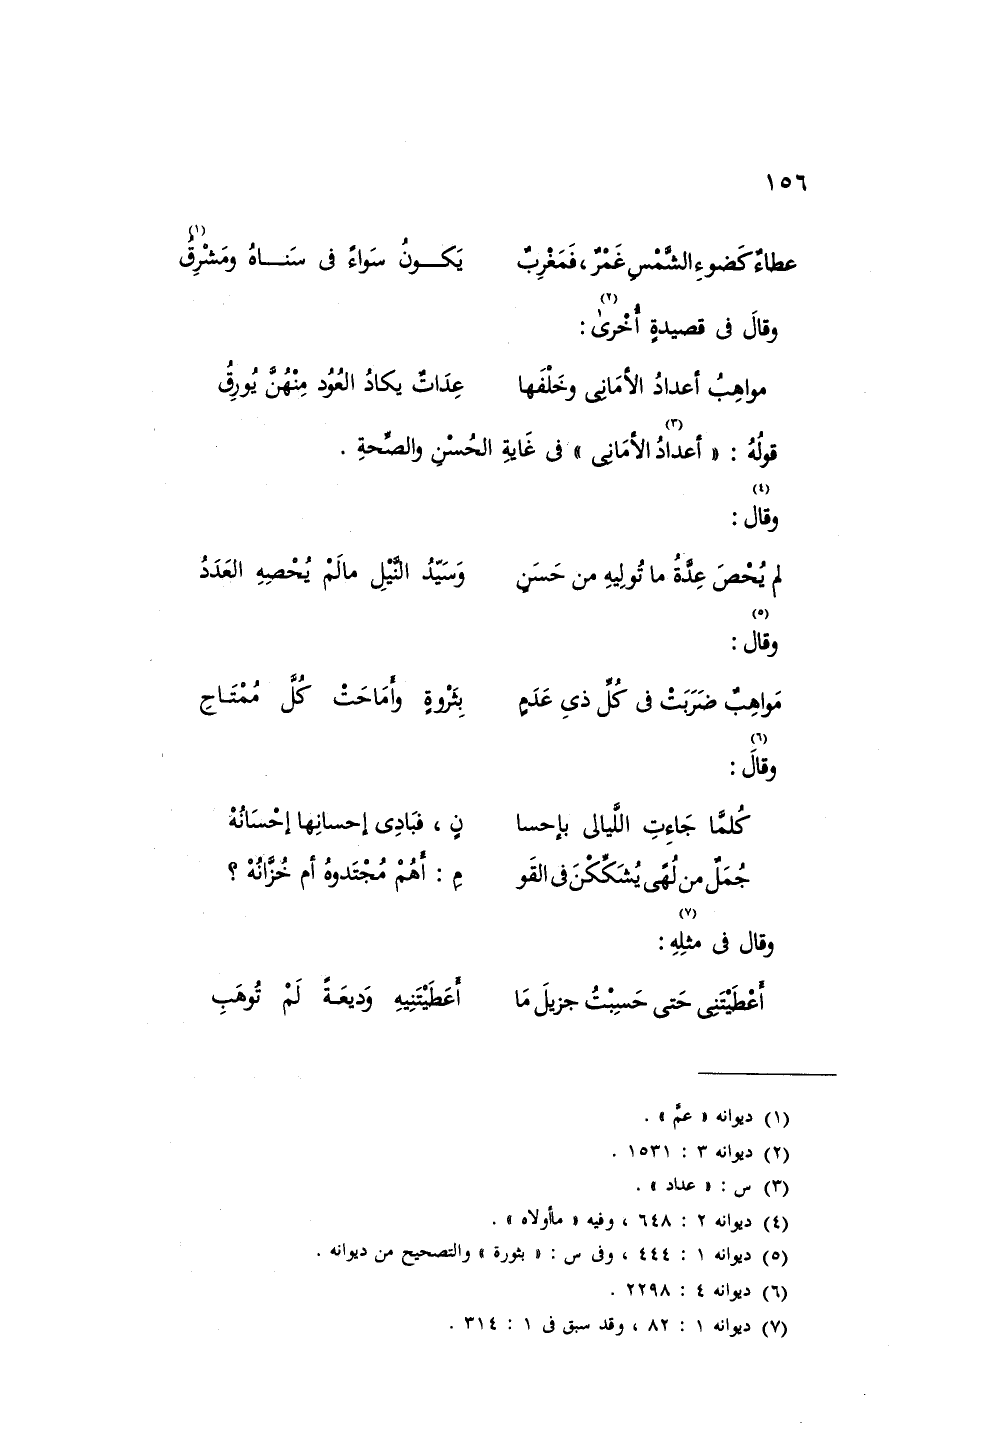 ١٥٦
عطاءٌ كَضوءِ الشَّمْسِ غَمْرٌ ، فَمَغْرِبٌ يَكـــونُ سَواءً فى سَنـــاهُ ومَشْرِقُ (١)
وقالَ فى قصيدةٍ أُخْرىٰ (٢) :
مواهِبُ أعدادُ الأمَانِى وخَلْفَها عِدَاتٌ يكادُ العُوُد مِنْهُنَّ يُورِقُ
قولُهُ : « أعدادُ (٣) الأمَانِى » فى غَايةِ الحُسْنِ والصِّحةِ .
وقال (٤) :
لم يُحْصَ عِدَّةُ ما تُولِيهِ من حَسَنٍ وَسَيّدُ النَّيْلِ مالَمْ يُحْصِهِ العَدَدُ
وقال (٥) :
مَواهِبٌ ضَرَبَتْ فى كُلِّ ذىِ عَدَمٍ بِثَرْوةٍ وأَمَاحَتْ كُلَّ مُمْتَـاحِ
وقالَ (٦) :
كُلمَّا جَاءِتِ اللَّيالى بإحسا نٍ ، فبَادِى إحسانِها إحْسَانُهْ
جُمَلٌ من لُهًى يُشَكِّكْنَ فى القَو مِ : أَهُمْ مُجْتَدوهُ أم خُزَّانُهْ ؟
وقال فى مثلِهِ (٧) :
أَعْطَيْتَنِى حَتى حَسِبْتُ جزيلَ مَا أَعَطَيْتَنِيهِ وَديعَـةً لَمْ تُوهَبِ
(١) ديوانه « عمَّ » .
(٢) ديوانه ٣ : ١٥٣١ .
(٣) س : « عداد » .
(٤) ديوانه ٢ : ٦٤٨ ، وفيه « ماأولاه » .
(٥) ديوانه ١ : ٤٤٤ ، وفى س : « بثورة » والتصحيح من ديوانه .
(٦) ديوانه ٤ : ٢٢٩٨ .
(٧) ديوانه ١ : ٨٢ ، وقد سبق فى ١ : ٣١٤ .